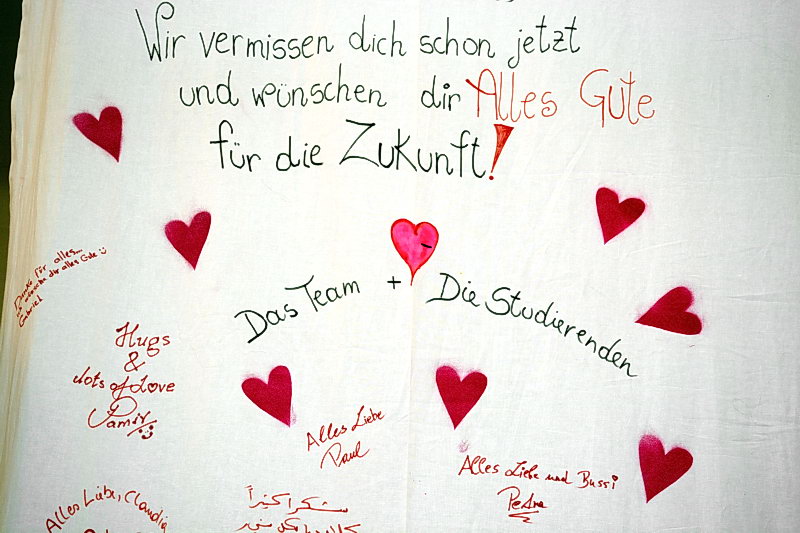 Wir vermissen dich schon jetzt
und wünschen dir Alles Gute
für die Zukunft!
Das Team + Die Studierenden
Danke für alles...
wünsche dir alles Gute :)
Gabriel
Hugs
&
Lots of Love
Pamir
Alles Liebe
Paul
Alles Liebe und Bussi
Petra
Alles Liebe, Claudia
شكراً كثيراً